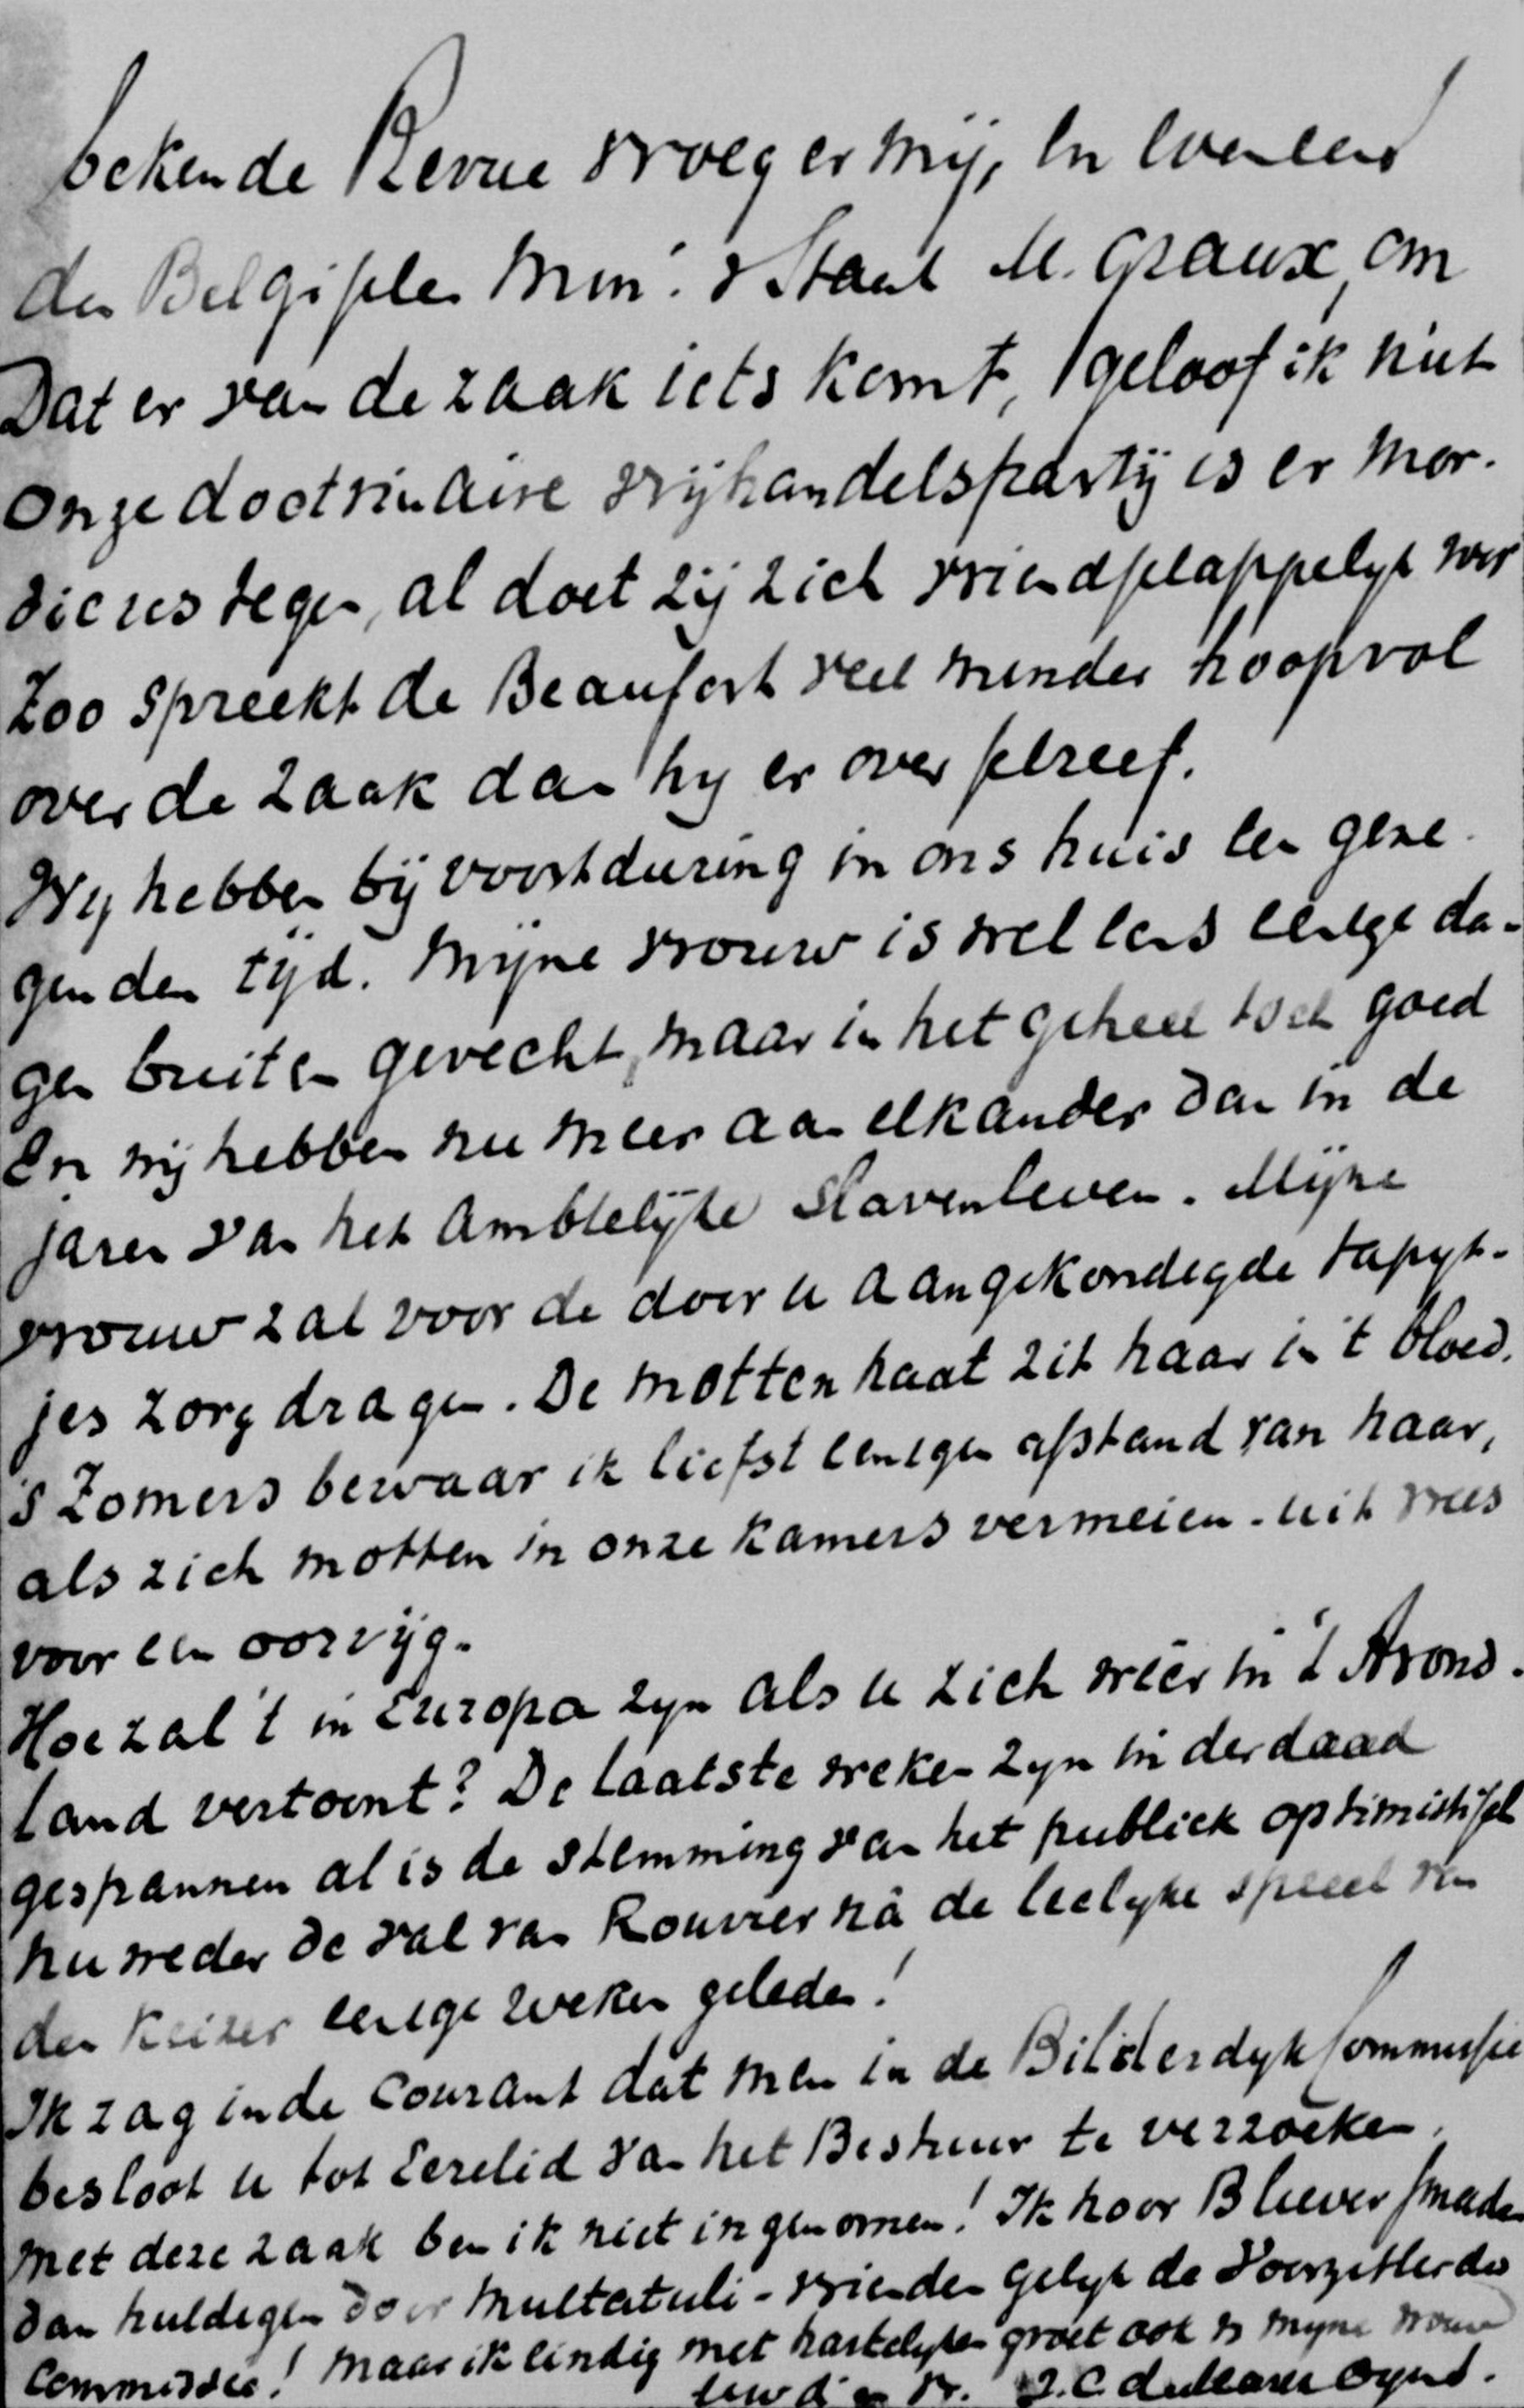 bekende Revue vroeg er mij, en eveneens
den Belgischen Min. v Staat M. Graux, om
Dat er van de zaak iets komt, geloof ik niet
Onze doctrinaire vrijhandelspartij is er mor-
dicus tegen, al doet zij zich vriendschappelijk voor
Zoo spreekt de Beaufort veel minder hoopvol
over de zaak dan hy er over schreef.
Wy hebben bij voortduring in ons huis een gene-
genden tijd. Mijne vrouw is wel eens eenige da-
gen buiten gevecht, maar in het geheel toch goed
En wij hebben nu meer aan elkander dan in de
jaren van het Ambtelijke Slavenleven. Mijne
vrouw zal voor de door u aangekondigde tapyt-
jes zorg dragen. De mottenhaat zit haar in 't bloed.
's Zomers bewaar ik liefst eenigen afstand van haar,
als zich motten in onze kamers vermeien - uit vrees
voor een oorvijg.
Hoe zal 't in Europa zyn als u zich weer in 't Avond-
land vertoont? De laatste weken zyn inderdaad
gespannen al is de stemming van het publiek optimistisch
nu weder de val van Rouvier nà de leelyke speech van
den Keizer eenige weken geleden!
Ik zag in de Courant dat men in de Bilderdyk Commissie
besloot u tot Eerelid van het Bestuur te verzoeken.
Met deze zaak ben ik niet ingenomen! Ik hoor B liever smaden
dan huldigen door Multatuli-vrienden gelyk de Voorzitter der
Commissie! Maar ik eindig met hartelyken groet ook v mijne vrouw
J.C.